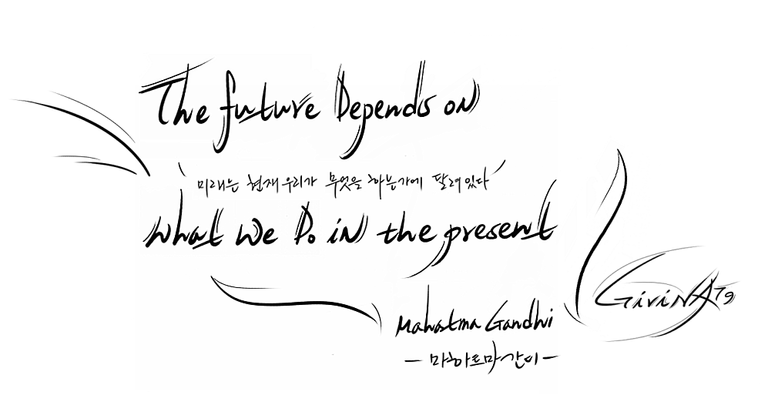 The future Depends on
미래는 현재 우리가 무엇을 하는가에 달려있다
what we Do in the present
Mahatma Gandhi
- 마하트마 간디 -